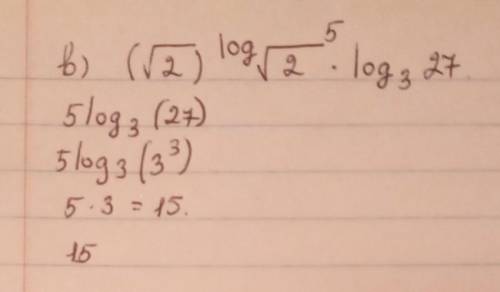 в) (√2)^log_√2 5 · log₃ 27
5log₃ (27)
5log₃ (3³)
5 · 3 = 15.
15